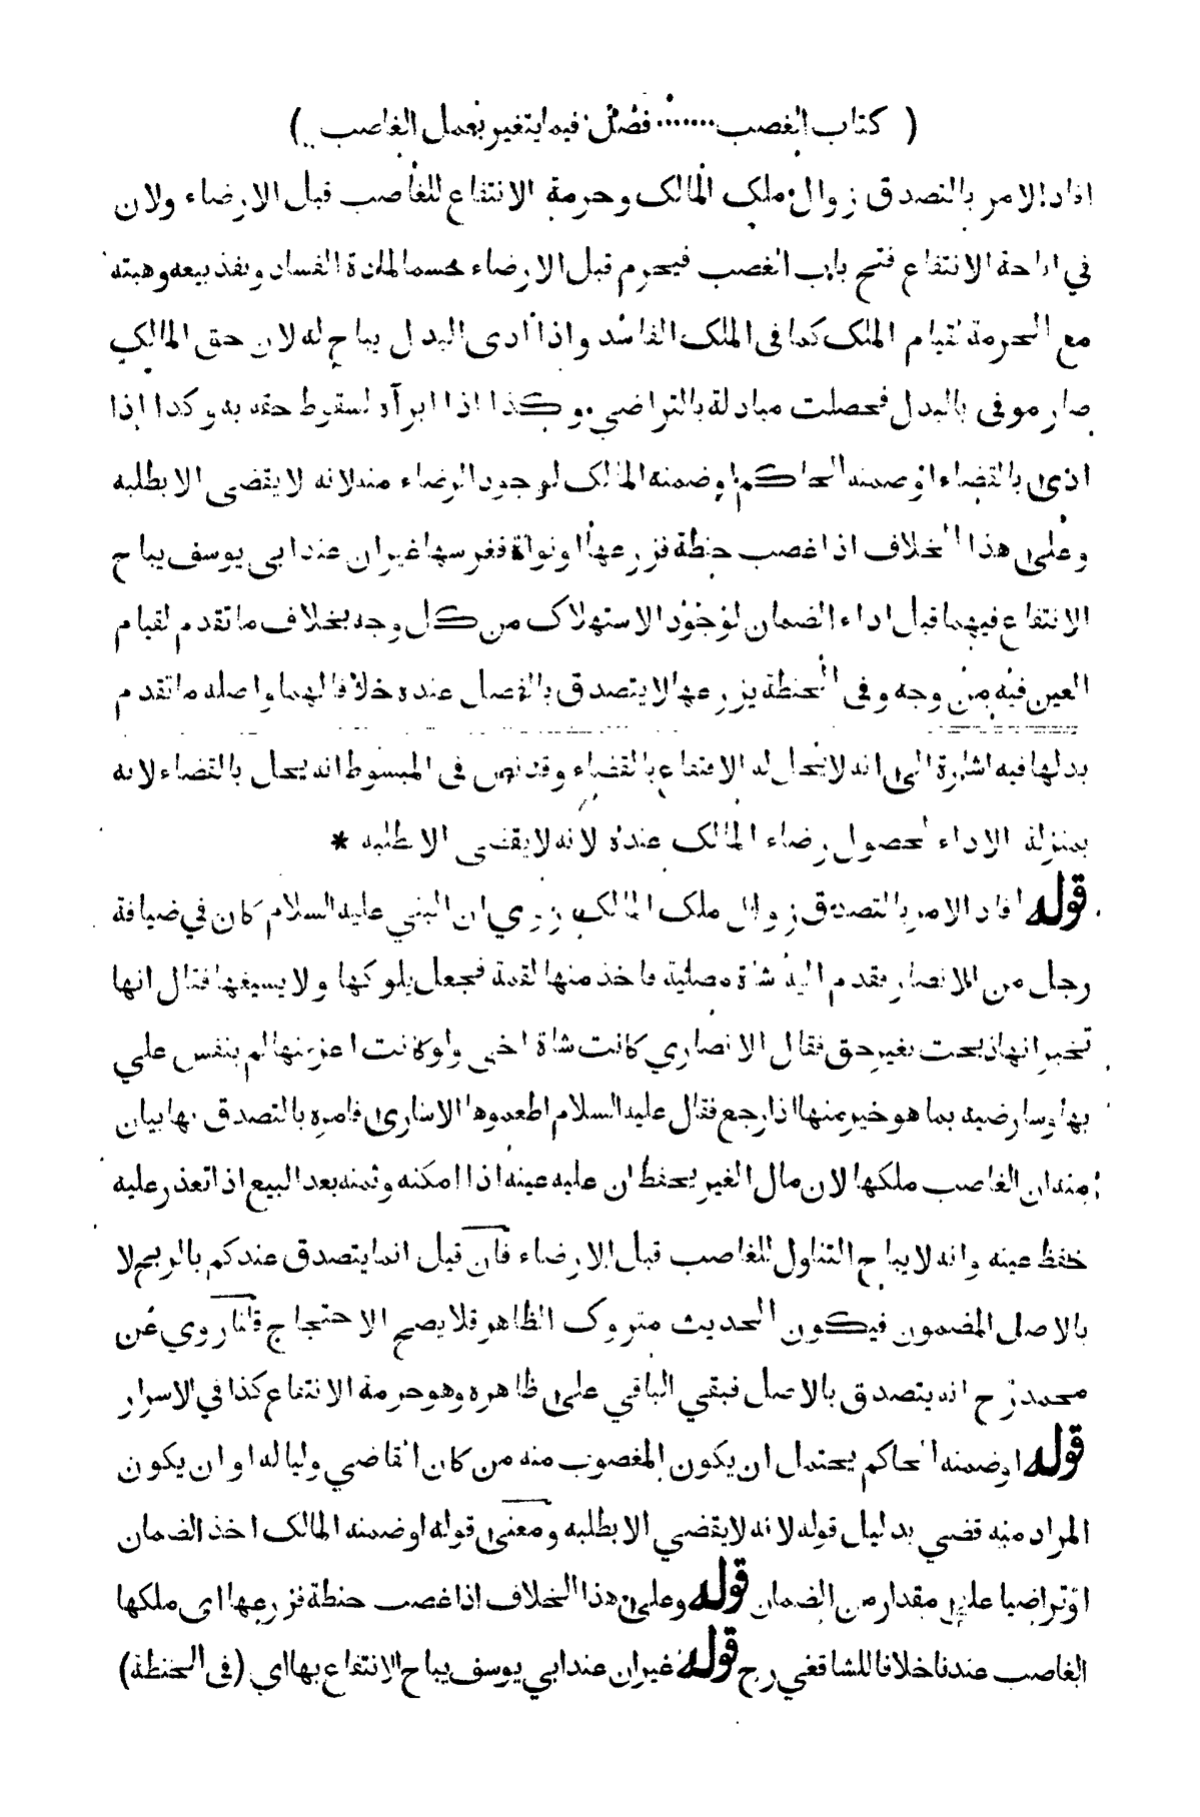 ( كتاب الغصب ....... فصل فيما يتغير بعمل الغاصب )
افاد الامر بالتصدق زوال ملك المالك وحرمة الانتفاع للغاصب قبل الارضاء ولان
في اباحة الانتفاع فتح باب الغصب فيحرم قبل الارضاء حسما لمادة الفساد ونفذ بيعه وهبته
مع الحرمة لقيام الملك كما فى الملك الفاسد واذا أدى البدل يباح له لان حق المالك
صار موفى بالبدل فحصلت مبادلة بالتراضي وكذا اذا ابرأه لسقوط حقه به وكذا إذا
ادى بالقضاء او ضمنه الحاكم او ضمنه المالك لوجود الرضاء منه لانه لا يقضى الا بطلبه
وعلى هذا الخلاف اذا غصب حنطة فزرعها او نواة فغرسها غير ان عند ابى يوسف يباح
الانتفاع فيهما قبل اداء الضمان لوجود الاستهلاك من كل وجه بخلاف ما تقدم لقيام
العين فيه من وجه وفى الحنطة يزرعها لا يتصدق بالفضل عنده خلافا لهما واصله ما تقدم
بدلها فيه اشارة الى انه لا يحل له الانتفاع بالقضاء وقد نص فى المبسوط انه يحل بالقضاء لانه
بمنزلة الاداء لحصول رضاء المالك عنده لانه لا يقضى الا بطلبه *
قوله افاد الامر بالتصدق زوال ملك المالك روي ان النبي عليه السلام كان في ضيافة
رجل من الانصار فقدم اليه شاة مصلية فاخذ منها لقمة فجعل يلوكها ولا يسيغها فقال انها
تخبر انها ذبحت بغير حق فقال الانصاري كانت شاة اخى ولو كانت اعز منها لم ينفس علي
بها وسارضيه بما هو خير منها اذا رجع فقال عليه السلام اطعموها الاسارى فامره بالتصدق بها بيان
منه ان الغاصب ملكها لان مال الغير يحفظ ان عليه عينه اذا امكنه وثمنه بعد البيع اذا تعذر عليه
حفظ عينه وانه لا يباح التناول للغاصب قبل الارضاء فان قيل انما يتصدق عندكم بالربح لا
بالاصل المضمون فيكون الحديث متروك الظاهر فلا يصح الاحتجاج قلنا روي عن
محمد رح انه يتصدق بالاصل فبقي الباقي على ظاهره وهو حرمة الانتفاع كذا في الاسرار
قوله او ضمنه الحاكم يحتمل ان يكون المغصوب منه من كان القاضي وليا له او ان يكون
المراد منه قضي بدليل قوله لانه لا يقضي الا بطلبه ومعنى قوله او ضمنه المالك اخذ الضمان
او تراضيا على مقدار من الضمان قوله وعلى هذا الخلاف اذا غصب حنطة فزرعها اى ملكها
الغاصب عندنا خلافا للشافعي رح قوله غير ان عند ابي يوسف يباح الانتفاع بها اي (فى الحنطة)